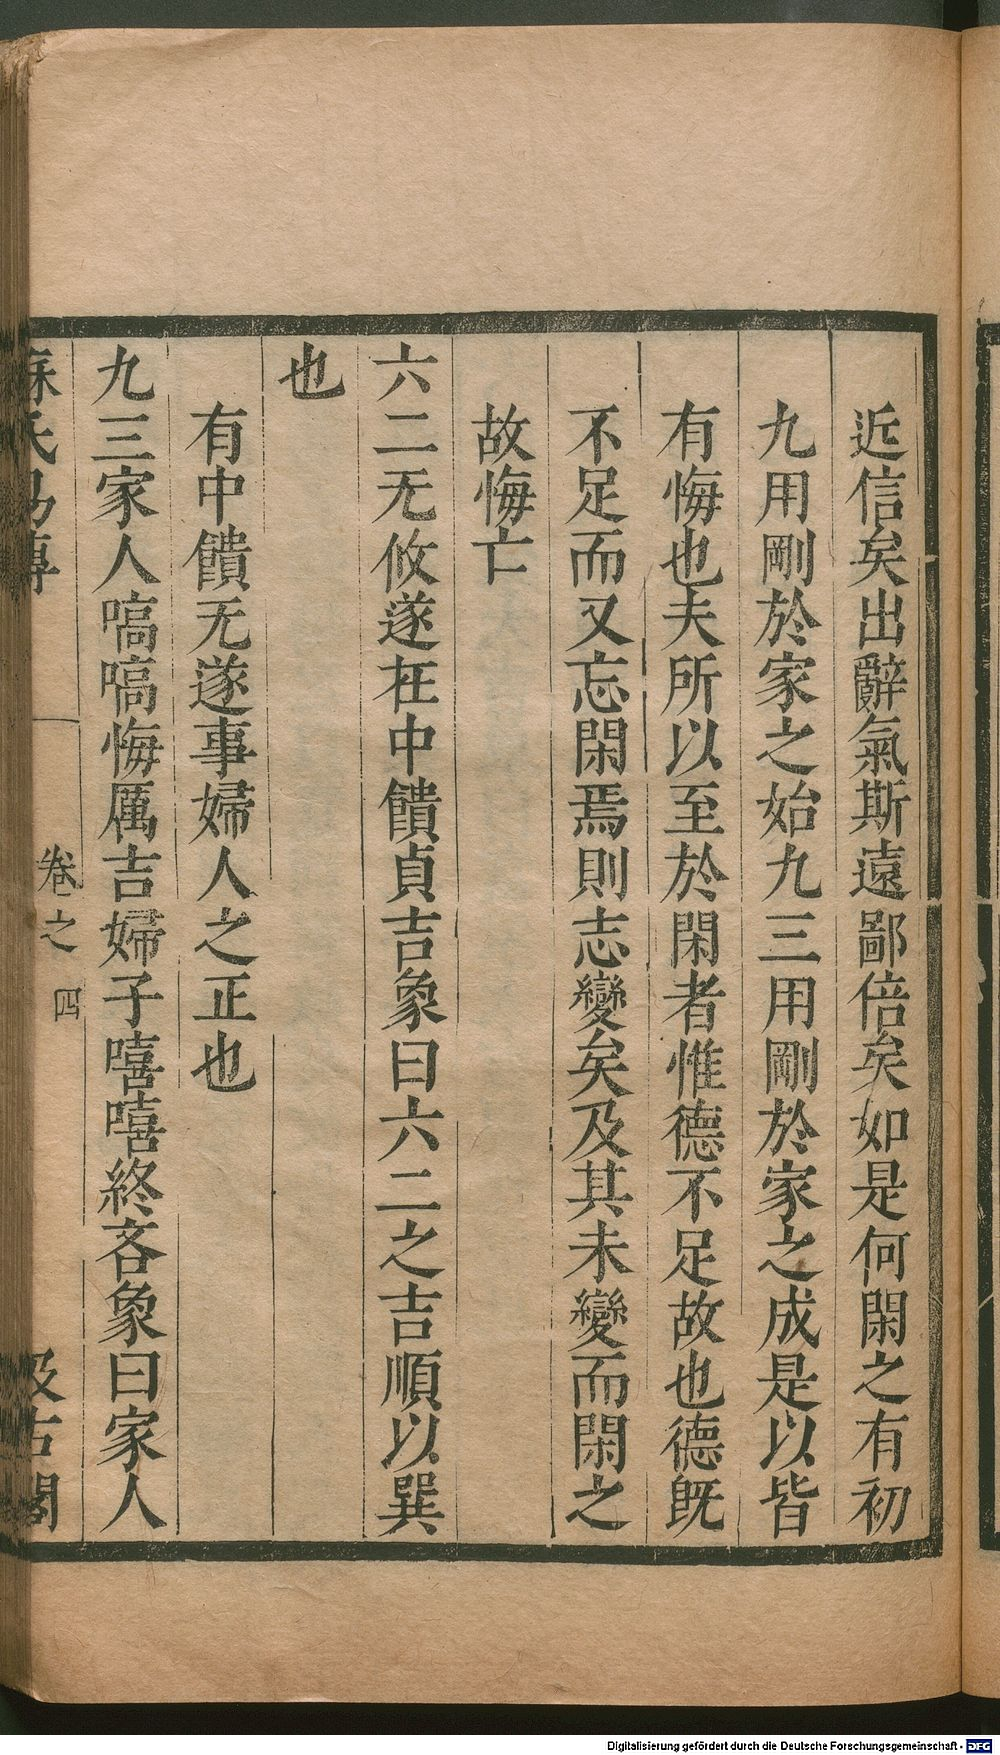 近信矣出辭氣斯遠鄙倍矣如是何閑之有初
九用剛於家之始九三用剛於家之成是以皆
有悔也夫所以至於閑者惟德不足故也德旣
不足而又忘閑焉則志變矣及其未變而閑之
故悔亡
六二无攸遂在中饋貞吉象曰六二之吉順以巽
也
有中饋无遂事婦人之正也
九三家人嗃嗃悔厲吉婦子嘻嘻終吝象曰家人
蘇氏易傳
卷之四
汲古閣
Digitalisierung gefördert durch die Deutsche Forschungsgemeinschaft - DFG